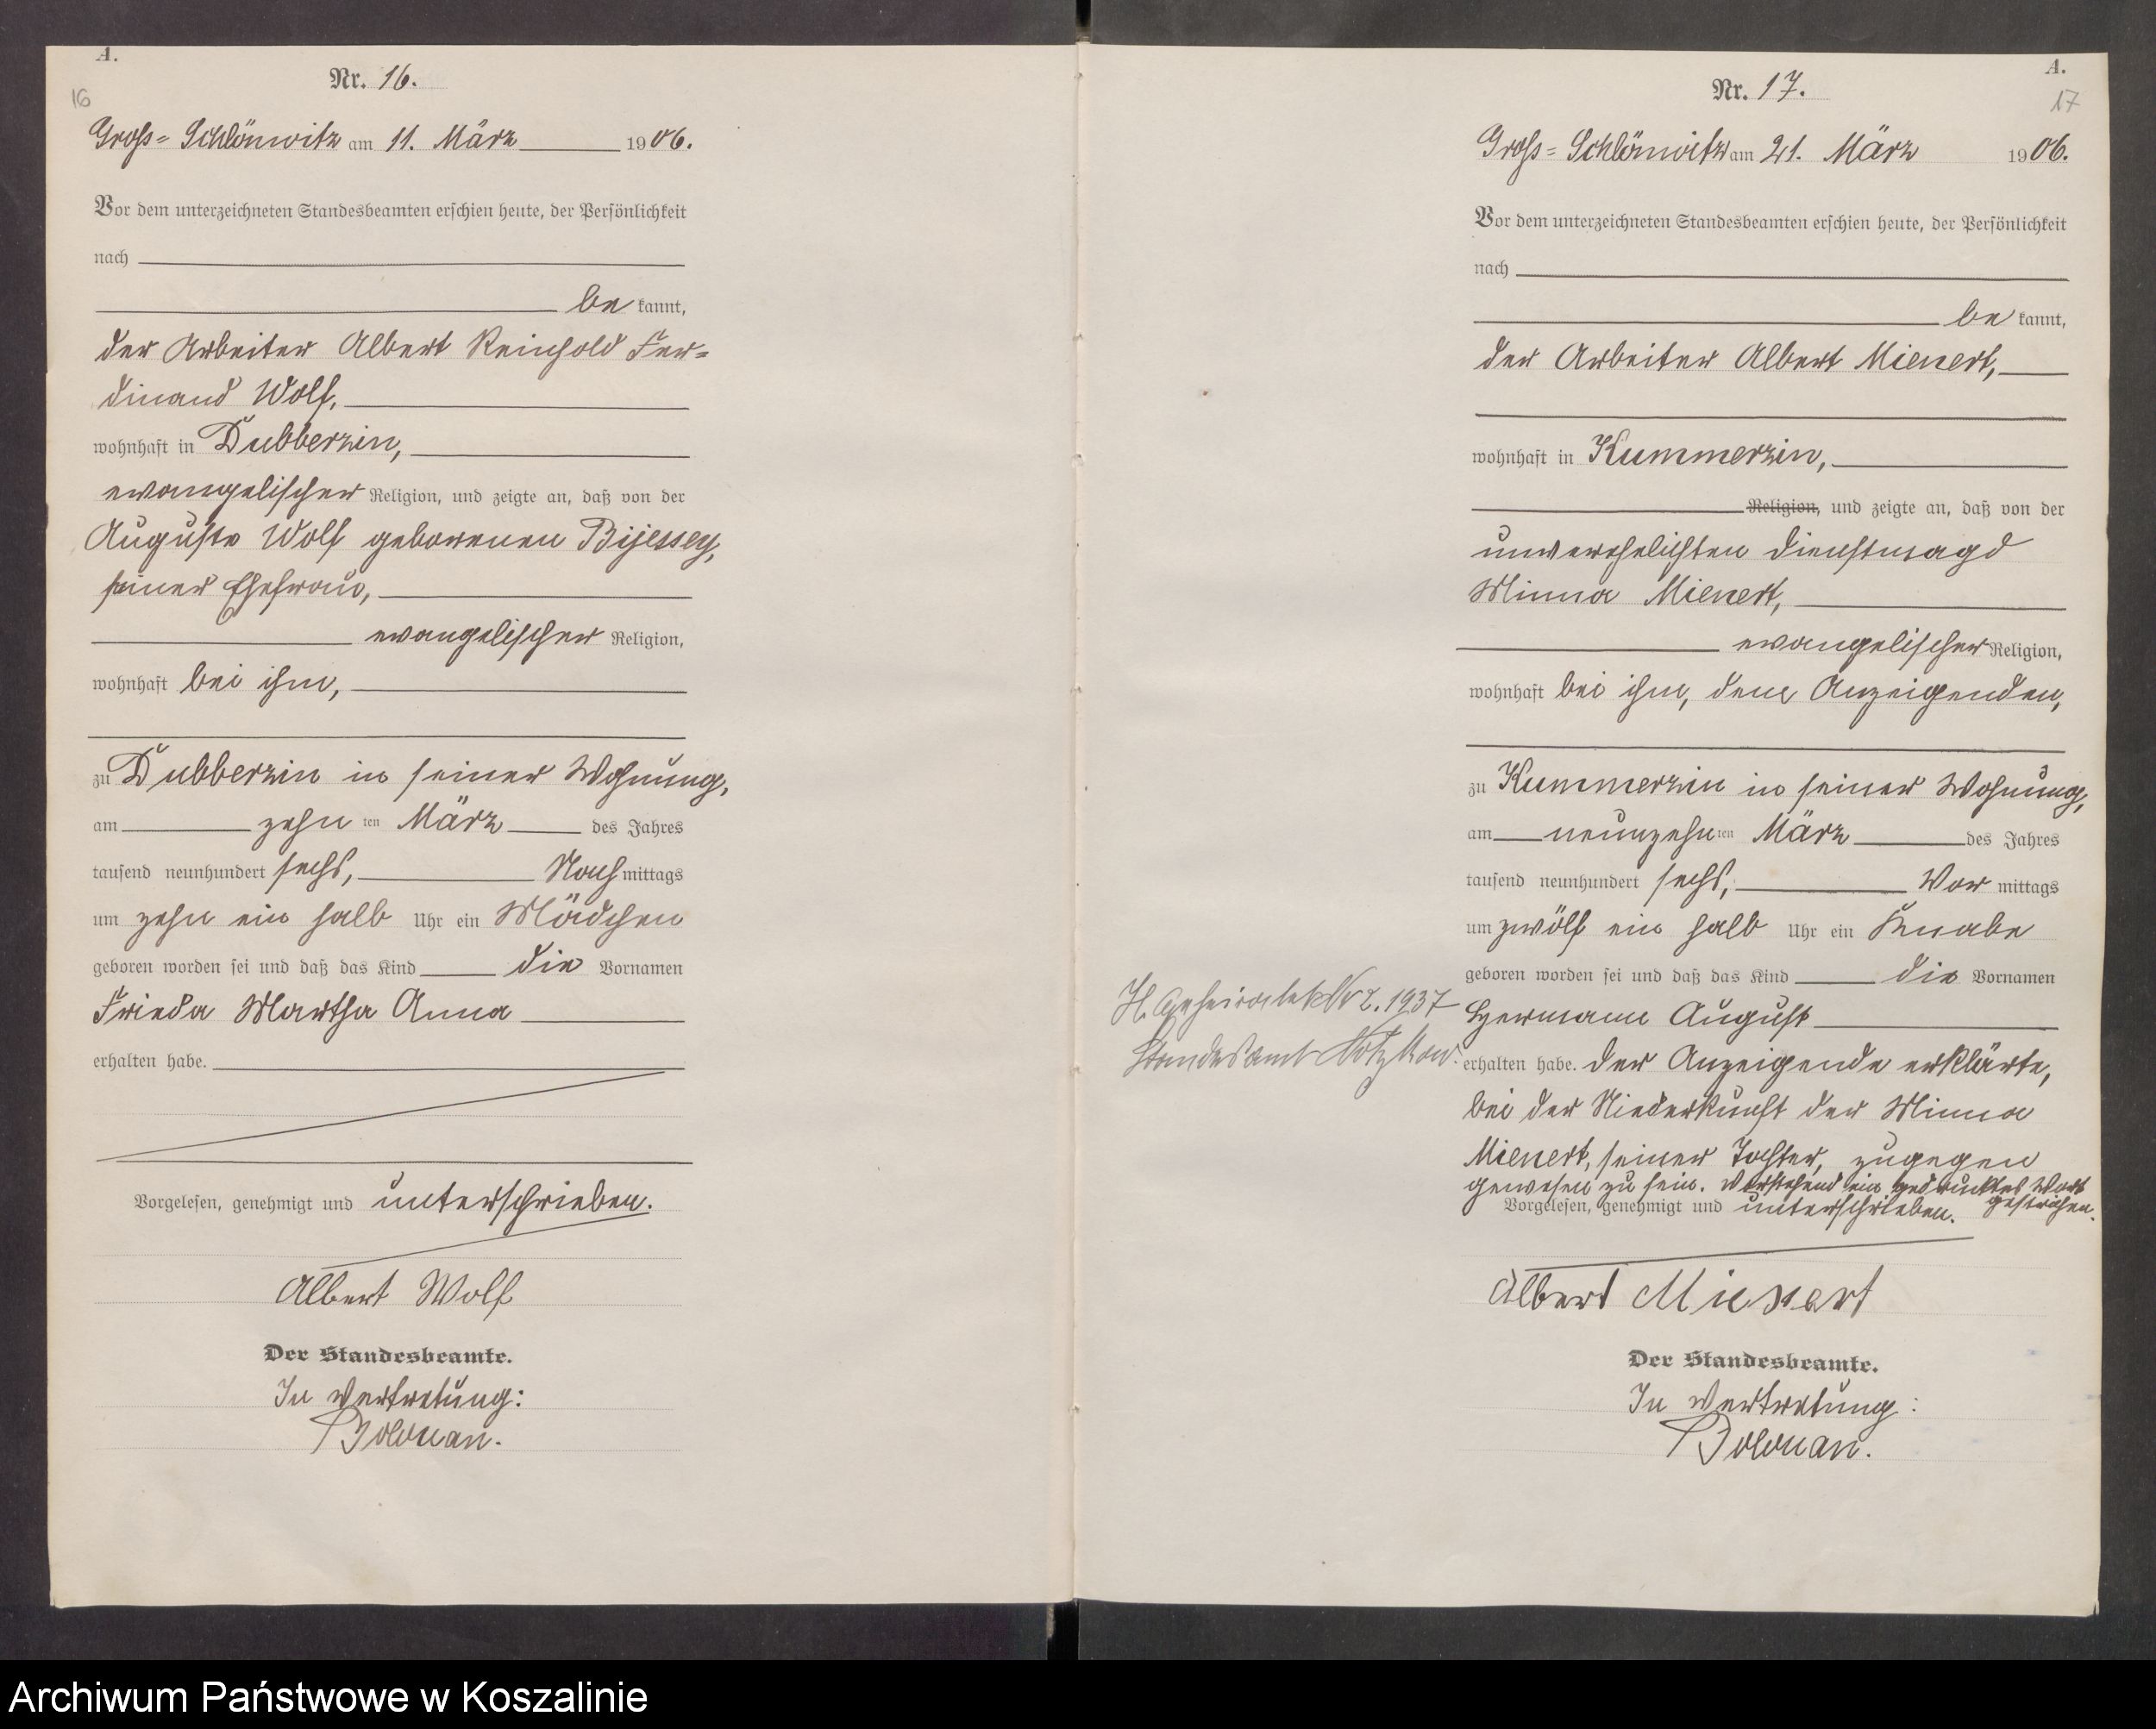 A.
Nr. 16.
16
Gross= Schlönwitz am 11. März 1906.
Vor dem unterzeichneten Standesbeamten erschien heute, der Persönlichkeit
nach
be kannt,
der Arbeiter Albert Reinhold Fer=
dinand Wolf,
wohnhaft in Dubberzin,
evangelischer Religion, und zeigte an, daß von der
Auguste Wolf geborenen Bijessey,
seiner Ehefrau,
evangelischer Religion,
wohnhaft bei ihm,
zu Dubberzin in seiner Wohnung,
am zehn ten März des Jahres
tausend neunhundert sechs, Nach mittags
um zehn ein halb Uhr ein Mädchen
geboren worden sei und daß das Kind die Vornamen
Frieda Martha Anna
erhalten habe.
Vorgelesen, genehmigt und unterschrieben.
Albert Wolf
Der Standesbeamte.
In Vertretung:
A.
Nr. 17.
17
Gross= Schlönwitz am 21. März 1906.
Vor dem unterzeichneten Standesbeamten erschien heute, der Persönlichkeit
nach
be kannt,
der Arbeiter Albert Mienert,
wohnhaft in Kummerzin,
Religion, und zeigte an, daß von der
unverehelichten Dienstmagd
Minna Mienert,
evangelischer Religion,
wohnhaft bei ihm, dem Anzeigenden,
zu Kummerzin in seiner Wohnung,
am neunzehn ten März des Jahres
tausend neunhundert sechs, Vor mittags
um zwölf ein halb Uhr ein Knabe
geboren worden sei und daß das Kind die Vornamen
Hermann August
erhalten habe. Der Anzeigende erklärte,
bei der Niederkunft der Minna
Mienert, seiner Tochter, zugegen
gewesen zu sein. Vorstehend ein gedrucktes Wort
gestrichen.
Vorgelesen, genehmigt und unterschrieben.
Albert Mienert
Der Standesbeamte.
In Vertretung:
H. Geheiratet Nr 2. 1937
Standesamt Notzkow.
Archiwum Państwowe w Koszalinie